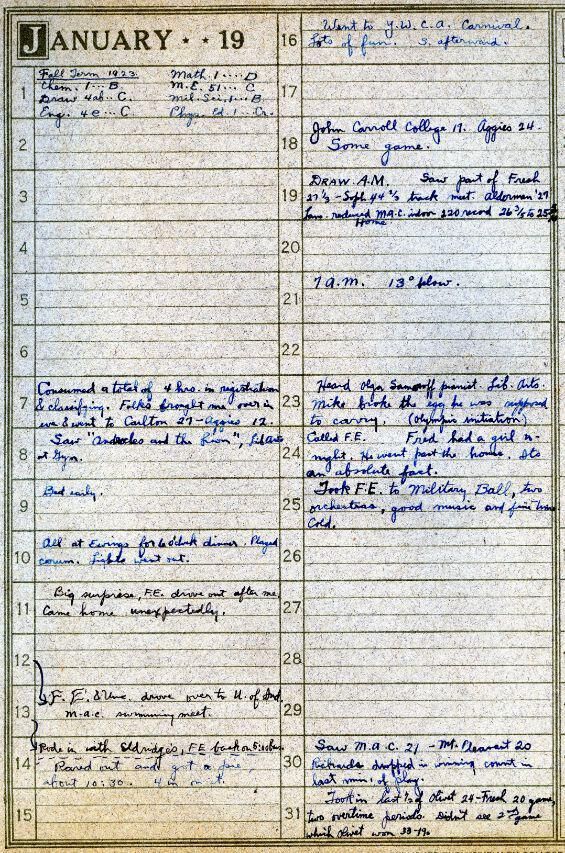 JANUARY ** 19
1
Fall Term 1923. Math. 1 .... D
Chem. 1 ... B M.E. 51 ... C
Draw 4ab .. C. Mil. Sci. 1 ... B
Eng. 4e ... C Phys. Ed. 1 .. Cr.
2
3
4
5
6
7
Consumed a total of 4 hrs. in registration
& classifying. Folks brought me over in
eve & went to Carlton 27 - Aggies 12.
8
Saw "Androcles and the Lion", Lib. Arts
at Gym.
9
Bed early.
10
All at Ewings for 6 o'clock dinner. Played
Lights went out.
11
Big surprise, F.E. drove out after me
Came home unexpectedly.
12
13
F. E. & drove over to U. of Ind.
M.A.C. swimming meet.
14
Rode in with Eldridges, F.E. back on
out and got a
about 10:30. 4 in
15
16
Went to Y.W.C.A. Carnival.
Lots of fun. S. afterward.
17
18
John Carroll College 17. Aggies 24.
Some game.
19
DRAW A.M. Saw part of Fresh
27 1/3 - Soph 44 2/3 track meet. Alderman '27
reduced M.A.C. indoor 220 record 26 3/5 to 25
Home
20
21
7 a.m. 13° below.
22
23
Heard Olga Samaroff pianist. Lib. Arts.
Mike broke the egg he was supposed
to carry. (Olympic initiation)
24
Called F.E. Fred had a girl
night. He went past the house. Its
an absolute fact.
25
Took F.E. to Military Ball, two
orchestras, good music and fine time
Cold.
26
27
28
29
30
Saw M.A.C. 21 - Mt. Pleasant 20
Richards dropped in winning count in
last min. of play.
31
Took in last 1/2 of Olivet 24 - Fresh 20 game,
two overtime periods. Didn't see 2nd game
which Olivet won 33-19.